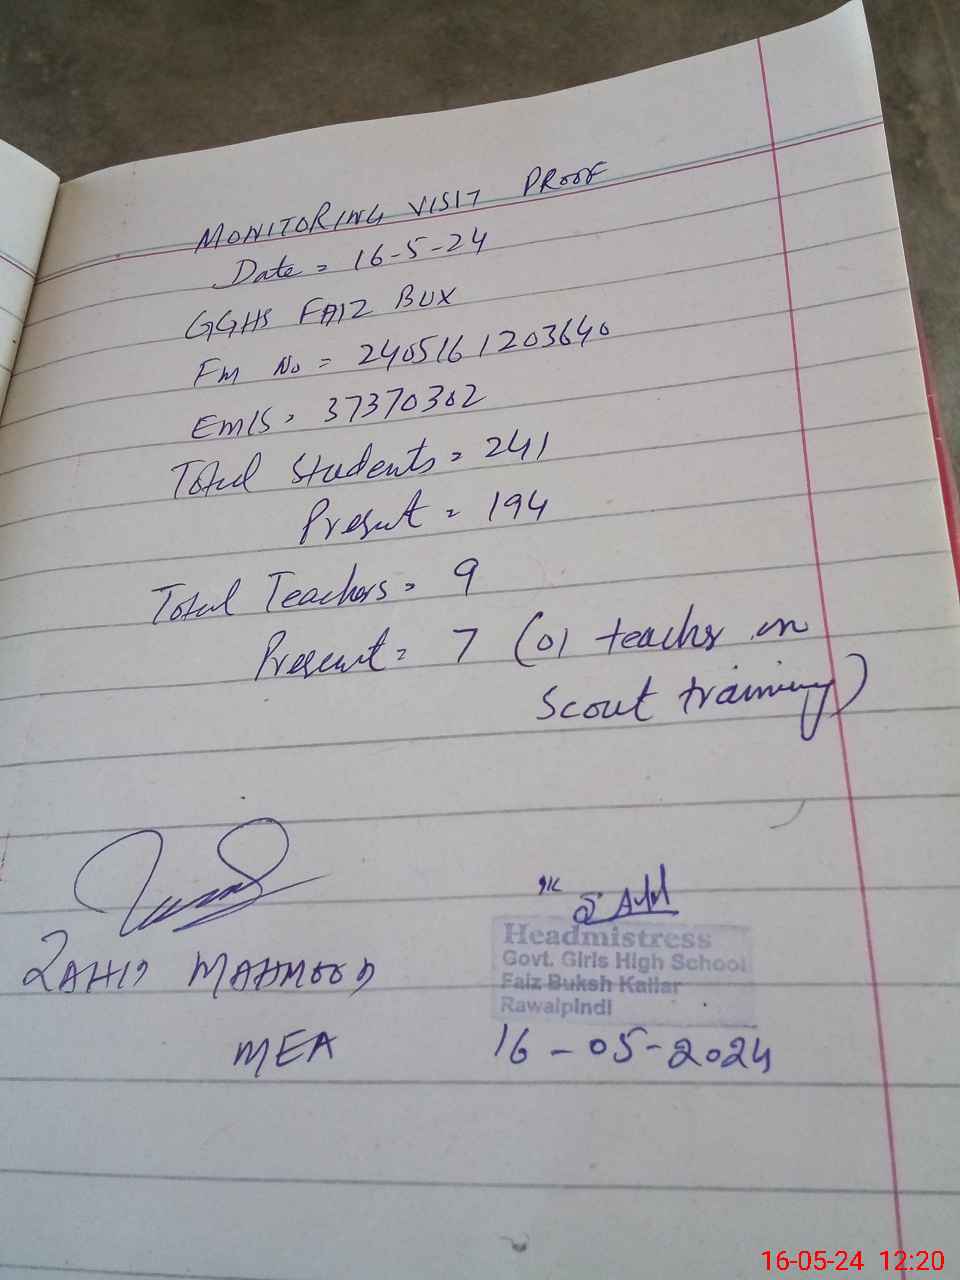 MONITORING VISIT PROOF
Date = 16-5-24
GGHS FAIZ BUX
Fm No = 2405161203640
EMIS = 37370302
Total Students = 241
Present = 194
Total Teachers = 9
Present = 7 (01 teacher in
Scout training)
ZAHID MAHMOOD
MEA
Headmistress
Govt. Girls High School
Faiz Buksh Kallar
Rawalpindi
16-05-2024
16-05-24 12:20